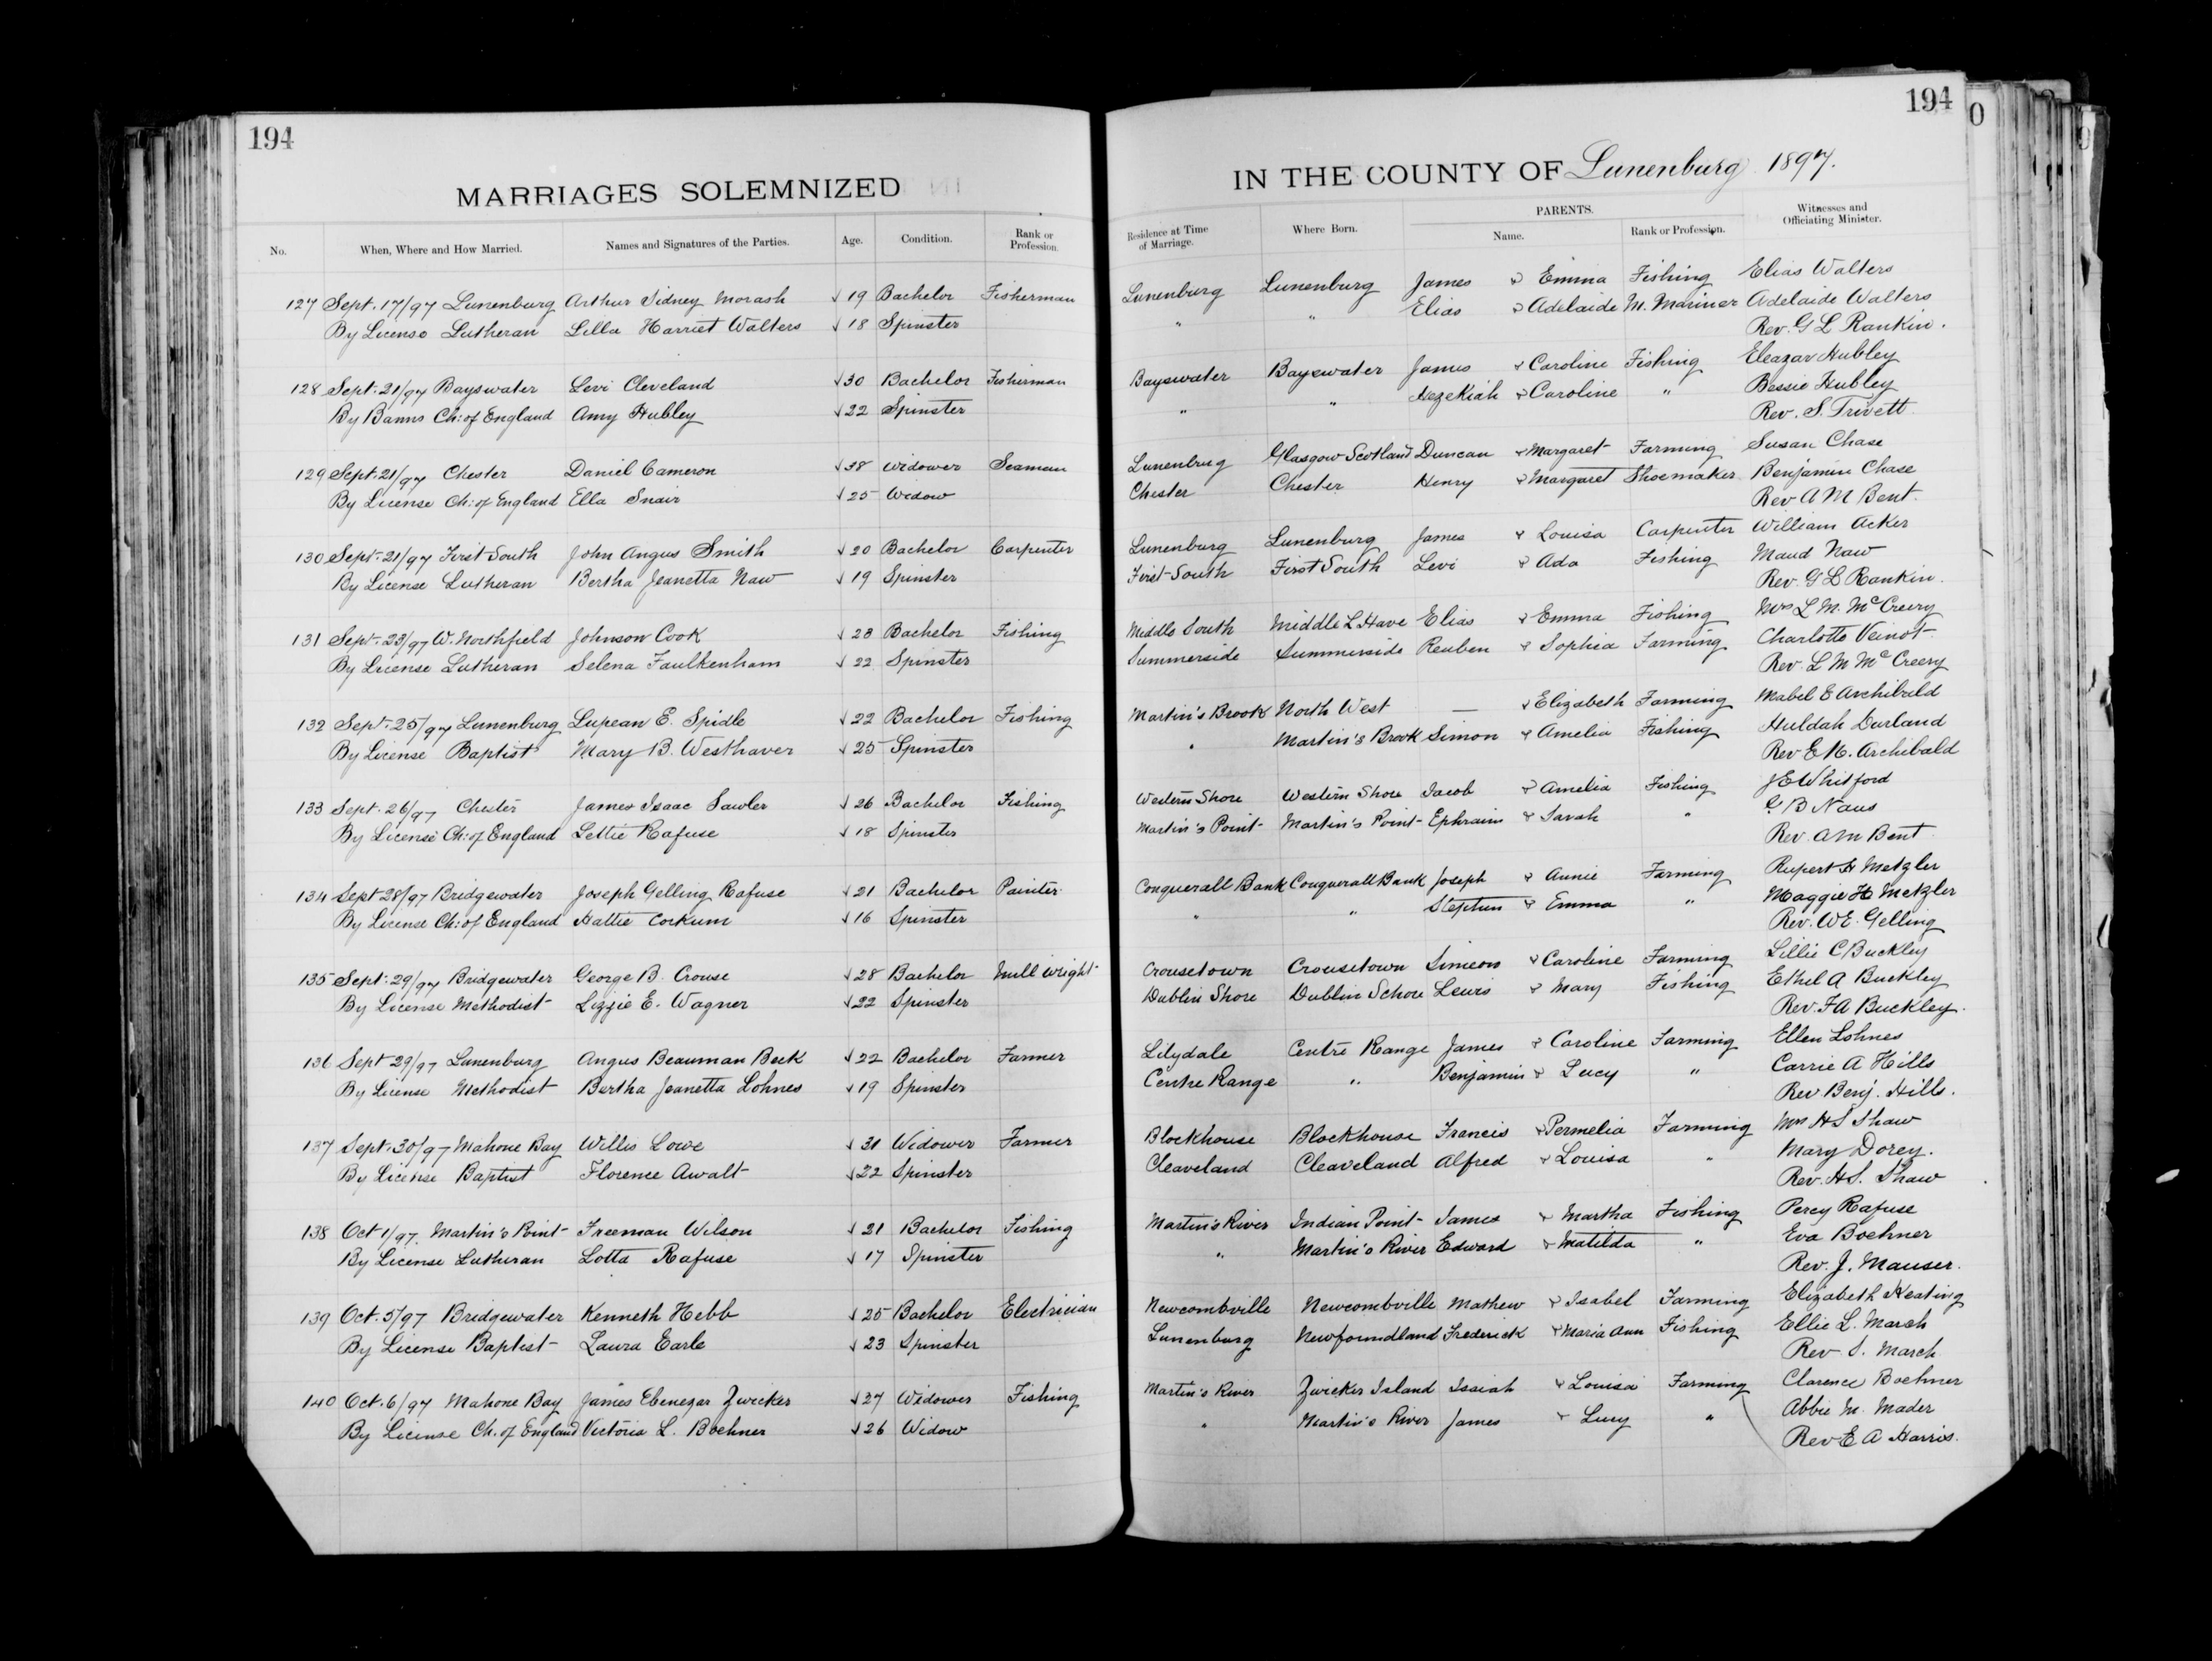 194
194
0
MARRIAGES SOLEMNIZED
IN THE COUNTY OF Lunenburg 1897.
No. When, Where and How Married. Names and Signatures of the Parties. Age. Condition. Rank or Profession. Residence at Time of Marriage. Where Born. PARENTS. Name. Rank or Profession. Witnesses and Officiating Minister.
127 Sept. 17/97 Lunenburg Arthur Sidney Morash 19 Bachelor Fisherman Lunenburg Lunenburg James & Emma Fishing Elias Walters
By License Lutheran Lilla Harriet Walters 18 Spinster " " Elias & Adelaide M. Mariner Adelaide Walters
Rev. G L Rankin.
128 Sept. 21/97 Bayswater Levi Cleveland 30 Bachelor Fisherman Bayswater Bayswater James & Caroline Fishing Eleazar Hubley
By Banns Ch: of England Amy Hubley 22 Spinster " " Hezekiah & Caroline " Bessie Hubley
Rev. S. Trivett
129 Sept. 21/97 Chester Daniel Cameron 38 Widower Seaman Lunenburg Glasgow Scotland Duncan & Margaret Farming Susan Chase
By License Ch: of England Ella Snair 25 Widow Chester Chester Henry & Margaret Shoemaker Benjamin Chase
Rev A M Bent.
130 Sept. 21/97 First South John Angus Smith 20 Bachelor Carpenter Lunenburg Lunenburg James & Louisa Carpenter William Acker
By License Lutheran Bertha Jeanetta Naw 19 Spinster First South First South Levi & Ada Fishing Maud Naw
Rev. G L Rankin.
131 Sept. 23/97 W. Northfield Johnson Cook 23 Bachelor Fishing Middle South Middle L Have Elias & Emma Fishing Mrs L M. McCreery
By License Lutheran Selena Faulkenham 22 Spinster Summerside Summerside Reuben & Sophia Farming Charlotte Veinot
Rev. L M McCreery
132 Sept. 25/97 Lunenburg Lupean E. Spidle 22 Bachelor Fishing Martin's Brook North West — & Elizabeth Farming Mabel E Archibald
By License Baptist Mary B. Westhaver 25 Spinster " Martin's Brook Simon & Amelia Fishing Huldah Durland
Rev E N. Archibald
133 Sept. 26/97 Chester James Isaac Sawler 26 Bachelor Fishing Western Shore Western Shore Jacob & Amelia Fishing J E Whitford
By License Ch: of England Lettie Rafuse 18 Spinster Martin's Point Martin's Point Ephraim & Sarah " G B Naus
Rev. A M Bent
134 Sept 28/97 Bridgewater Joseph Gelling Rafuse 21 Bachelor Painter Conquerall Bank Conquerall Bank Joseph & Annie Farming Rupert H Metzler
By License Ch: of England Hattie Corkum 16 Spinster " " Stephen & Emma " Maggie H Metzler
Rev. W E. Gelling
135 Sept. 29/97 Bridgewater George B. Crouse 28 Bachelor Mill Wright Crousetown Crousetown Simeon & Caroline Farming Lillie C Buckley
By License Methodist Lizzie E. Wagner 22 Spinster Dublin Shore Dublin Schore Lewis & Mary Fishing Ethel A Buckley
Rev. F A Buckley.
136 Sept 29/97 Lunenburg Angus Beauman Beck 22 Bachelor Farmer Lilydale Centre Range James & Caroline Farming Ellen Lohnes
By License Methodist Bertha Jeanetta Lohnes 19 Spinster Centre Range " Benjamin & Lucy " Carrie A Hills
Rev Benj. Hills.
137 Sept. 30/97 Mahone Bay Willis Lowe 31 Widower Farmer Blockhouse Blockhouse Francis & Permelia Farming Mrs H S Shaw
By License Baptist Florence Awalt 22 Spinster Cleaveland Cleaveland Alfred & Louisa " Mary Dorey.
Rev. H S. Shaw
138 Oct 1/97. Martin's Point Freeman Wilson 21 Bachelor Fishing Martin's River Indian Point James & Martha Fishing Percy Rafuse
By License Lutheran Lotta Rafuse 17 Spinster " Martin's River Edward & Matilda " Eva Boehner
Rev. J. Mauser.
139 Oct. 5/97 Bridgewater Kenneth Hebb 25 Bachelor Electrician Newcombville Newcombville Mathew & Isabel Farming Elizabeth Keating
By License Baptist Laura Earle 23 Spinster Lunenburg Newfoundland Frederick & Maria Ann Fishing Ellie L. March
Rev. S. March
140 Oct. 6/97 Mahone Bay James Ebenezar Zwicker 27 Widower Fishing Martin's River Zwicker Island Isaiah & Louisa Farming Clarence Boehner
By License Ch. of England Victoria L. Boehner 26 Widow " Martin's River James & Lucy " Abbie M. Mader
Rev E A Harris.